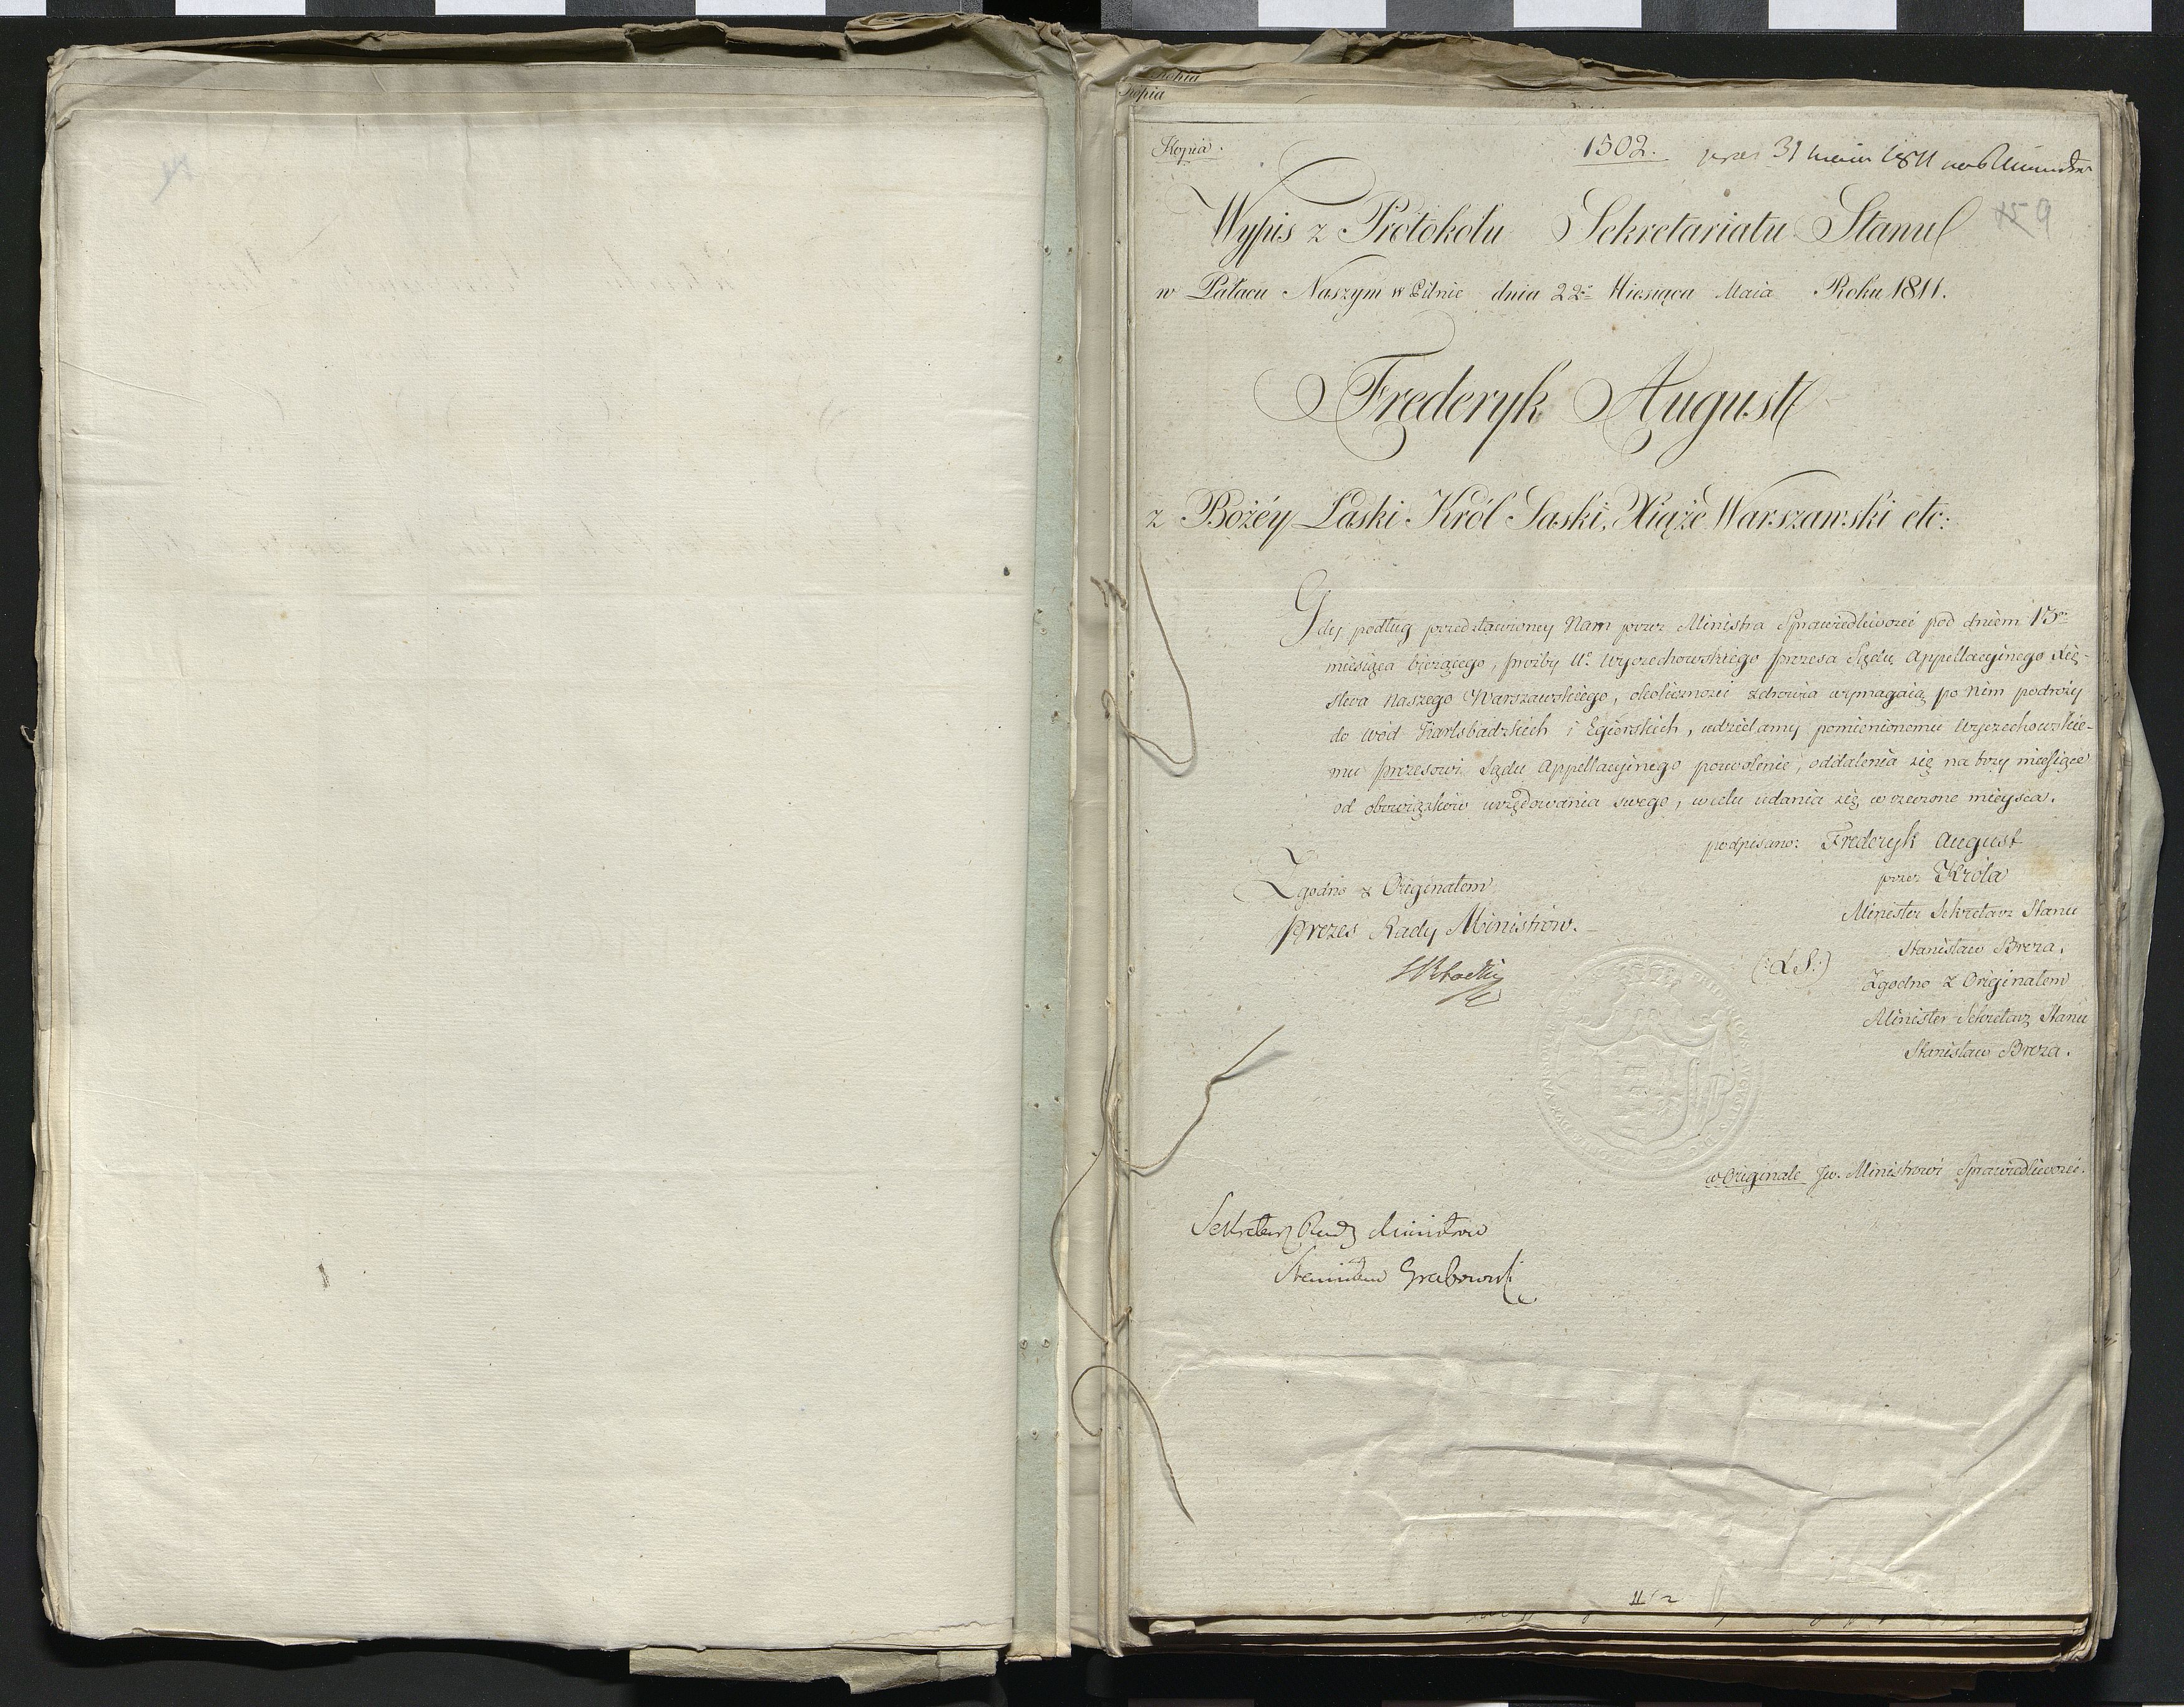 Kopia
Kopia
Kopia.
1502. 31 1811
Wypis z Protokołu Sekretariatu Stanu
15 9
w Pałacu Naszym w Pilnic dnia 22º Miesiąca Maia Roku 1811.
Frederyk August
z Bożéy Łaski Król Saski, Xiąże Warszawski etc:
Gdy podług przedstawioney Nam przez Ministra Sprawiedliwości pod dniem 15º
miesiąca bieżącego, prożby Uº Wyczechowskiego prezesa Sądu Appellacyinego Xię-
stwa Naszego Warszawskiego, okoliczności zdrowia wymagaią po Nim podroży
do wód Karlsbadzkich i Egierskich, udzielamy pomienionemu Wyczechowskie-
mu prezesowi Sądu Appellacyinego pozwolenie, oddalenia się na trzy miesiące
od obowiązków urzędowania swego, w celu udania się w rzeczone mieysca.
podpisano: Frederyk August
przez Króla
Minister Sekretarz Stanu
Stanisław Breza.
(:L.S:)
Zgodno z Originałem
Minister Sekretarz Stanu
Stanisław Breza.
Zgodno z Originałem
Prezes Rady Ministrów.
w Originale Jw. Ministrowi Sprawiedliwości.
Sekretarz Rady Ministrow
Stanisław Grabowski